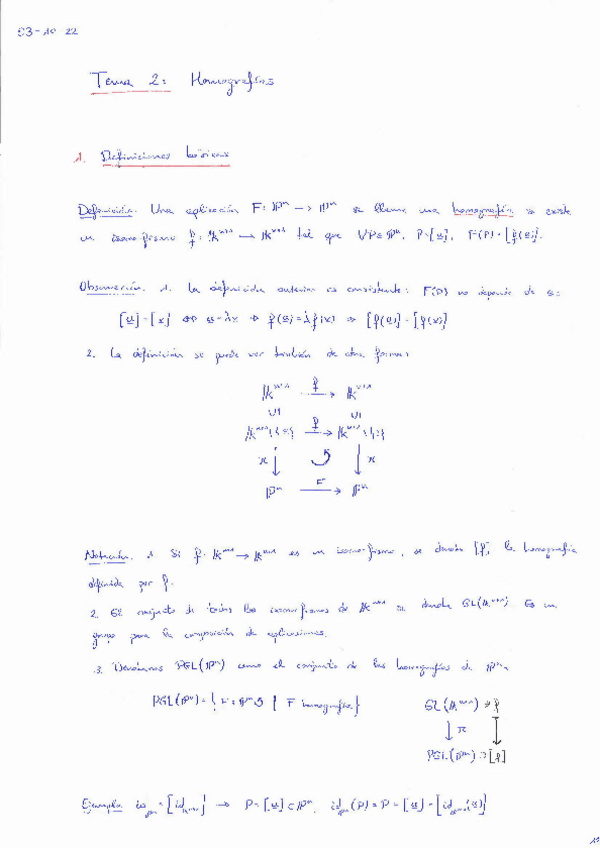 03-10-22
Tema 2: Homografías
1. Definiciones básicas
Definición. Una aplicación F: ℙⁿ → ℙⁿ se llama una homografía si existe
un isomorfismo f: 𝕂ⁿ⁺¹ → 𝕂ⁿ⁺¹ tal que ∀P∈ℙⁿ, P=[u], F(P)=[f(u)].
Observación. 1. La definición anterior es consistente: F(P) no depende de u:
[u]=[x] ⇔ u=λx ⇒ f(u)=λf(x) ⇒ [f(u)]=[f(x)]
2. La definición se puede ver también de otra forma:
𝕂ⁿ⁺¹ f → 𝕂ⁿ⁺¹
∪1 ∪1
𝕂ⁿ⁺¹\{0} f → 𝕂ⁿ⁺¹\{0}
π ↓ ↓ π
ℙⁿ F → ℙⁿ
Notación. 1. Si f: 𝕂ⁿ⁺¹ → 𝕂ⁿ⁺¹ es un isomorfismo, se denota [f] la homografía
definida por f.
2. El conjunto de todos los isomorfismos de 𝕂ⁿ⁺¹ se denota GL(𝕂ⁿ⁺¹) Es un
grupo para la composición de aplicaciones.
3. Denotamos PGL(ℙⁿ) como el conjunto de las homografías de ℙⁿ.
PGL(ℙⁿ)={F: ℙⁿ↺ | F homografía} GL(𝕂ⁿ⁺¹) ∋ f
↓ π
PGL(ℙⁿ) ∋ [f]
Ejemplo id_ℙⁿ=[id_𝕂ⁿ⁺¹] → P=[u]∈ℙⁿ, id_ℙⁿ(P)=P=[u]=[id_𝕂ⁿ⁺¹(u)]